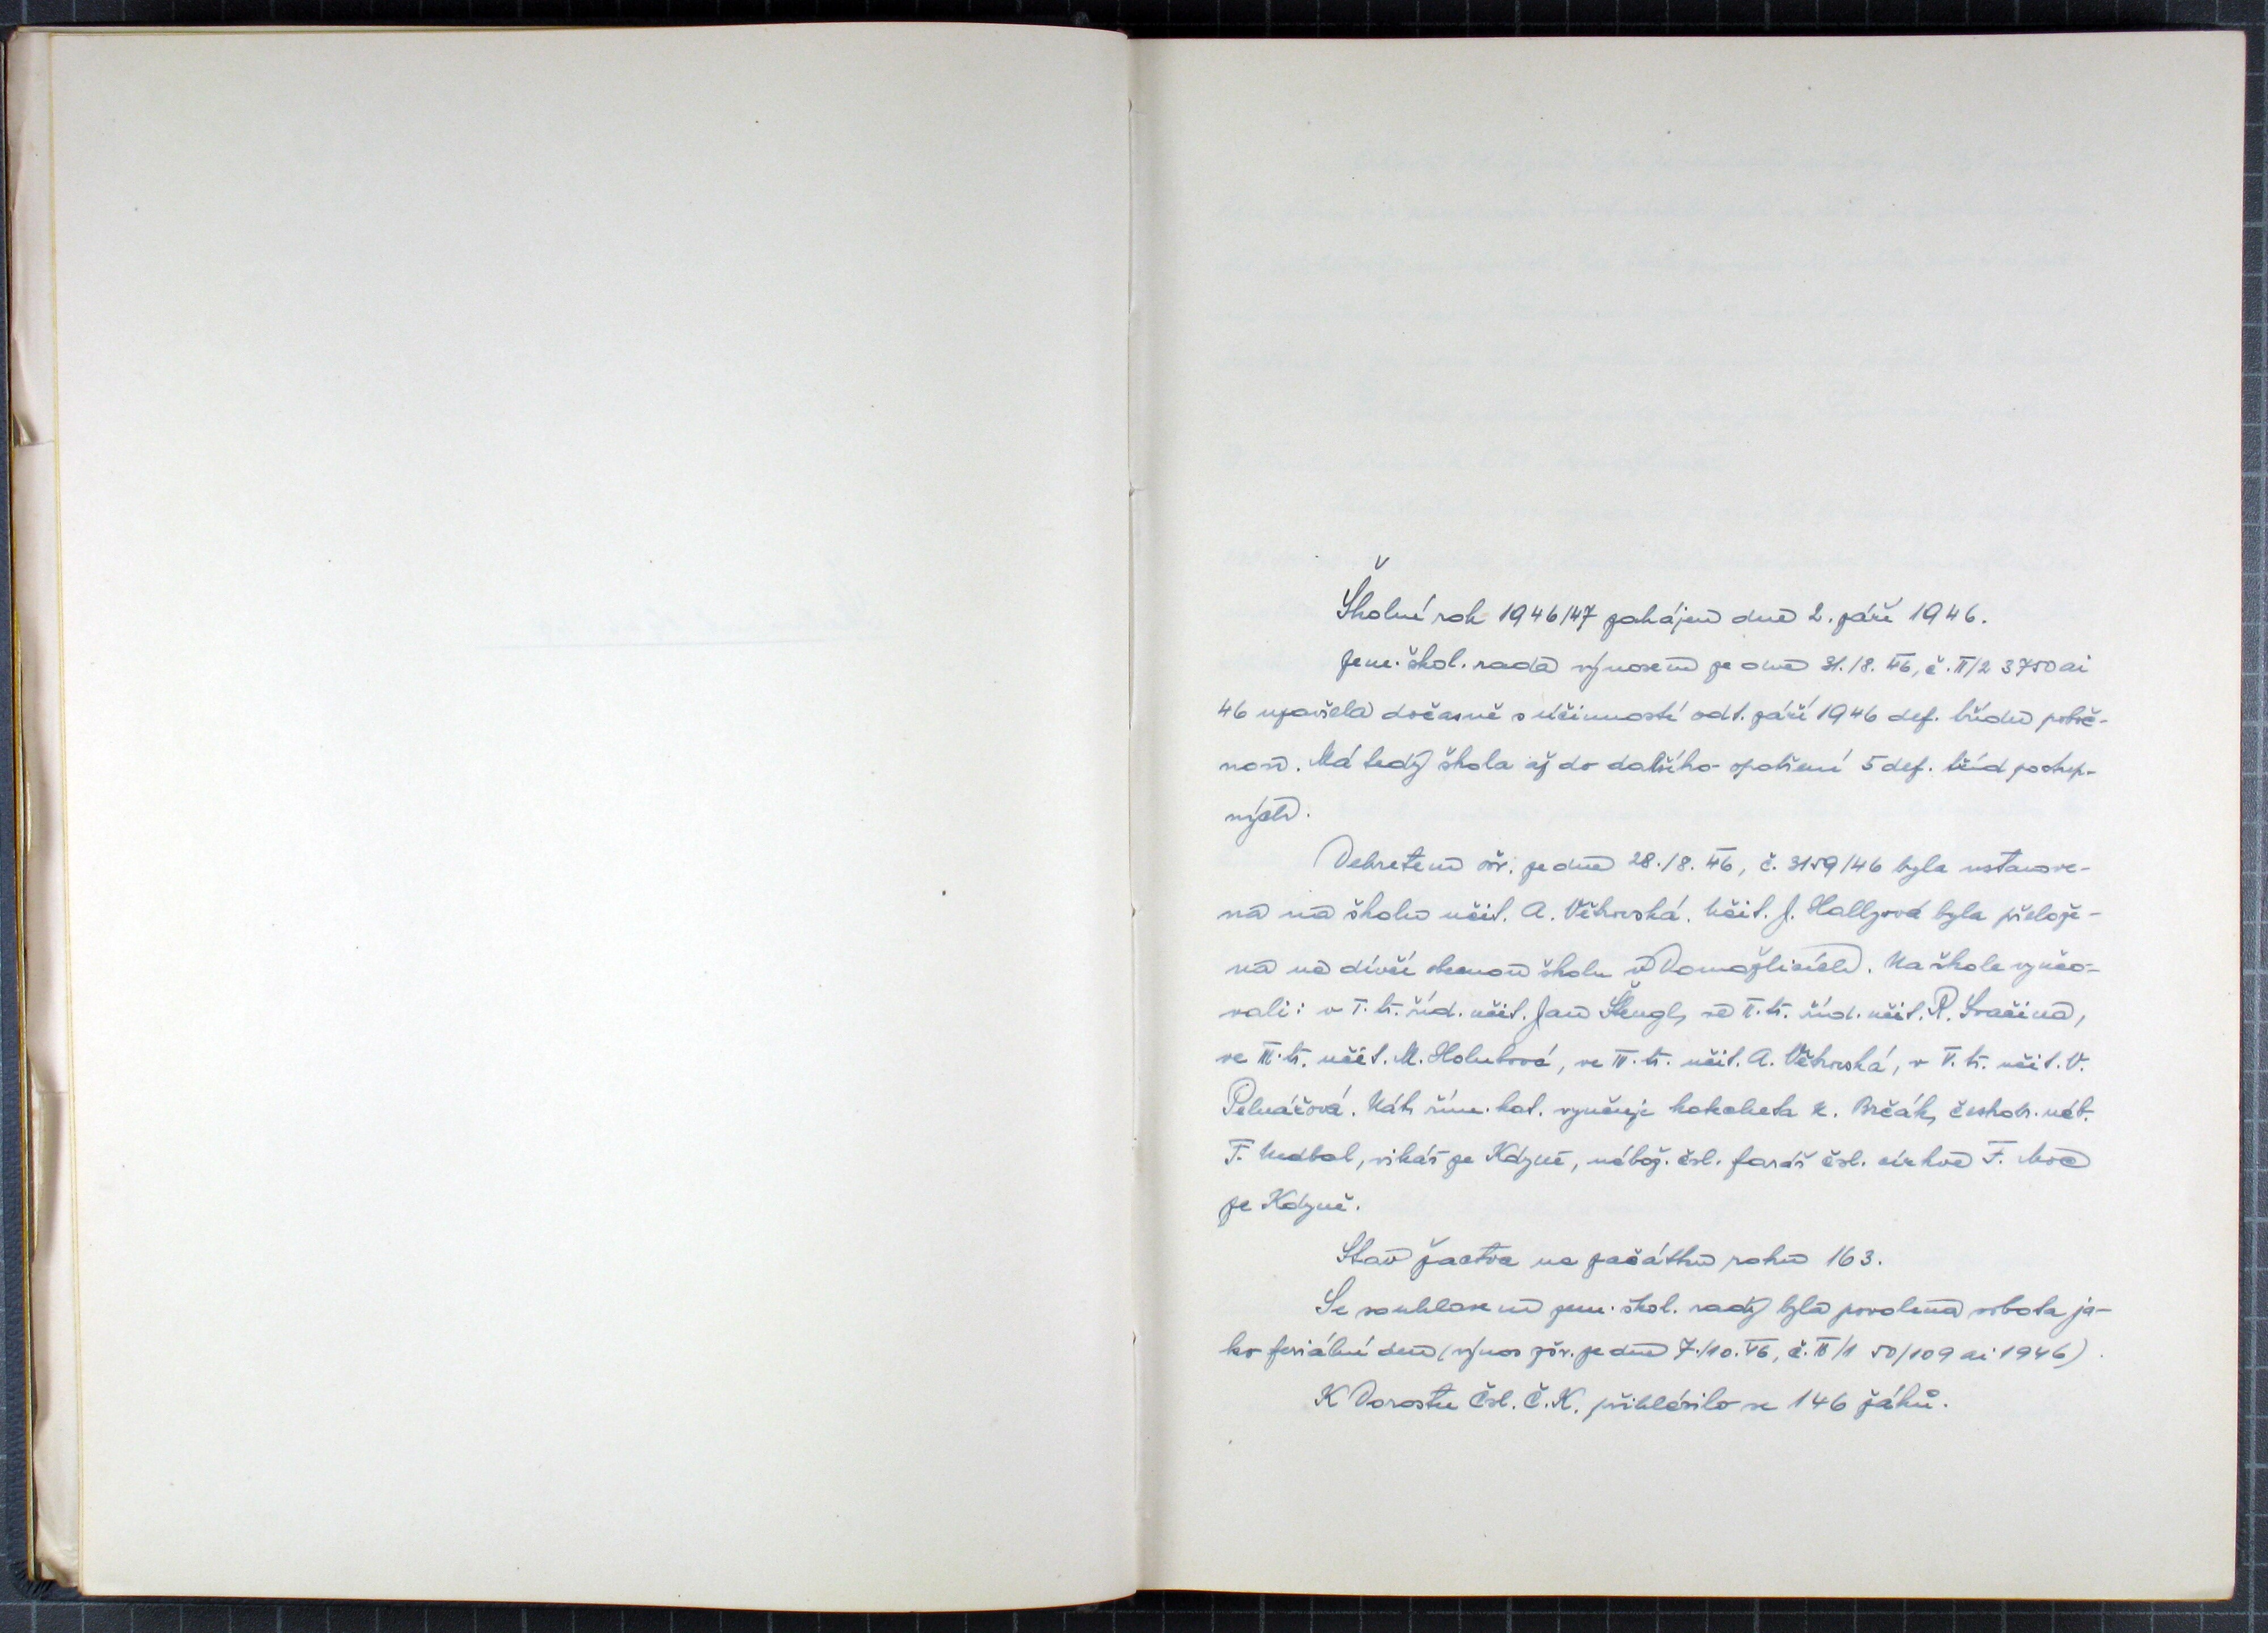 Školní rok 1946/47 zahájen dne 2. září 1946.
Zem. škol. rada výnosem ze dne 31./8. 46, č. II/2 3750 ai
46 uzavřela dočasně s účinností od 1. září 1946 def. třídu poboč-
nou. Má tedy škola až do dalšího opatření 5 def. tříd postup-
ných.
Dekretem ošv. ze dne 28./8. 46, č. 3159/46 byla ustanove-
na na školu učit. A. Větrovská. Učit. J. Hallzová byla přelože-
na na dívčí obecnou školu v Domažlicích. Na škole vyučo-
vali: v I. tř. říd. učit. Jan Štengl, ve II. tř. říd. učit. R. Svačina,
ve III. tř. učit. M. Holubová, ve IV. tř. učit. A. Větrovská, v V. tř. učit. V.
Pelnářová. Náb. řím. kat. vyučuje katecheta K. Brčák, českobr. náb.
F. Nedbal, vikář ze Kdyně, nábož. čsl. farář čsl. církve F. Moc
ze Kdyně.
Stav žactva na začátku roku 163.
Se souhlasem zem. škol. rady byla povolena sobota ja-
ko feriální den (výnos zšr. ze dne 7./10. 46, č. II/1 50/109 ai 1946).
K Dorostu Čsl. Č. K. přihlásilo se 146 žáků.